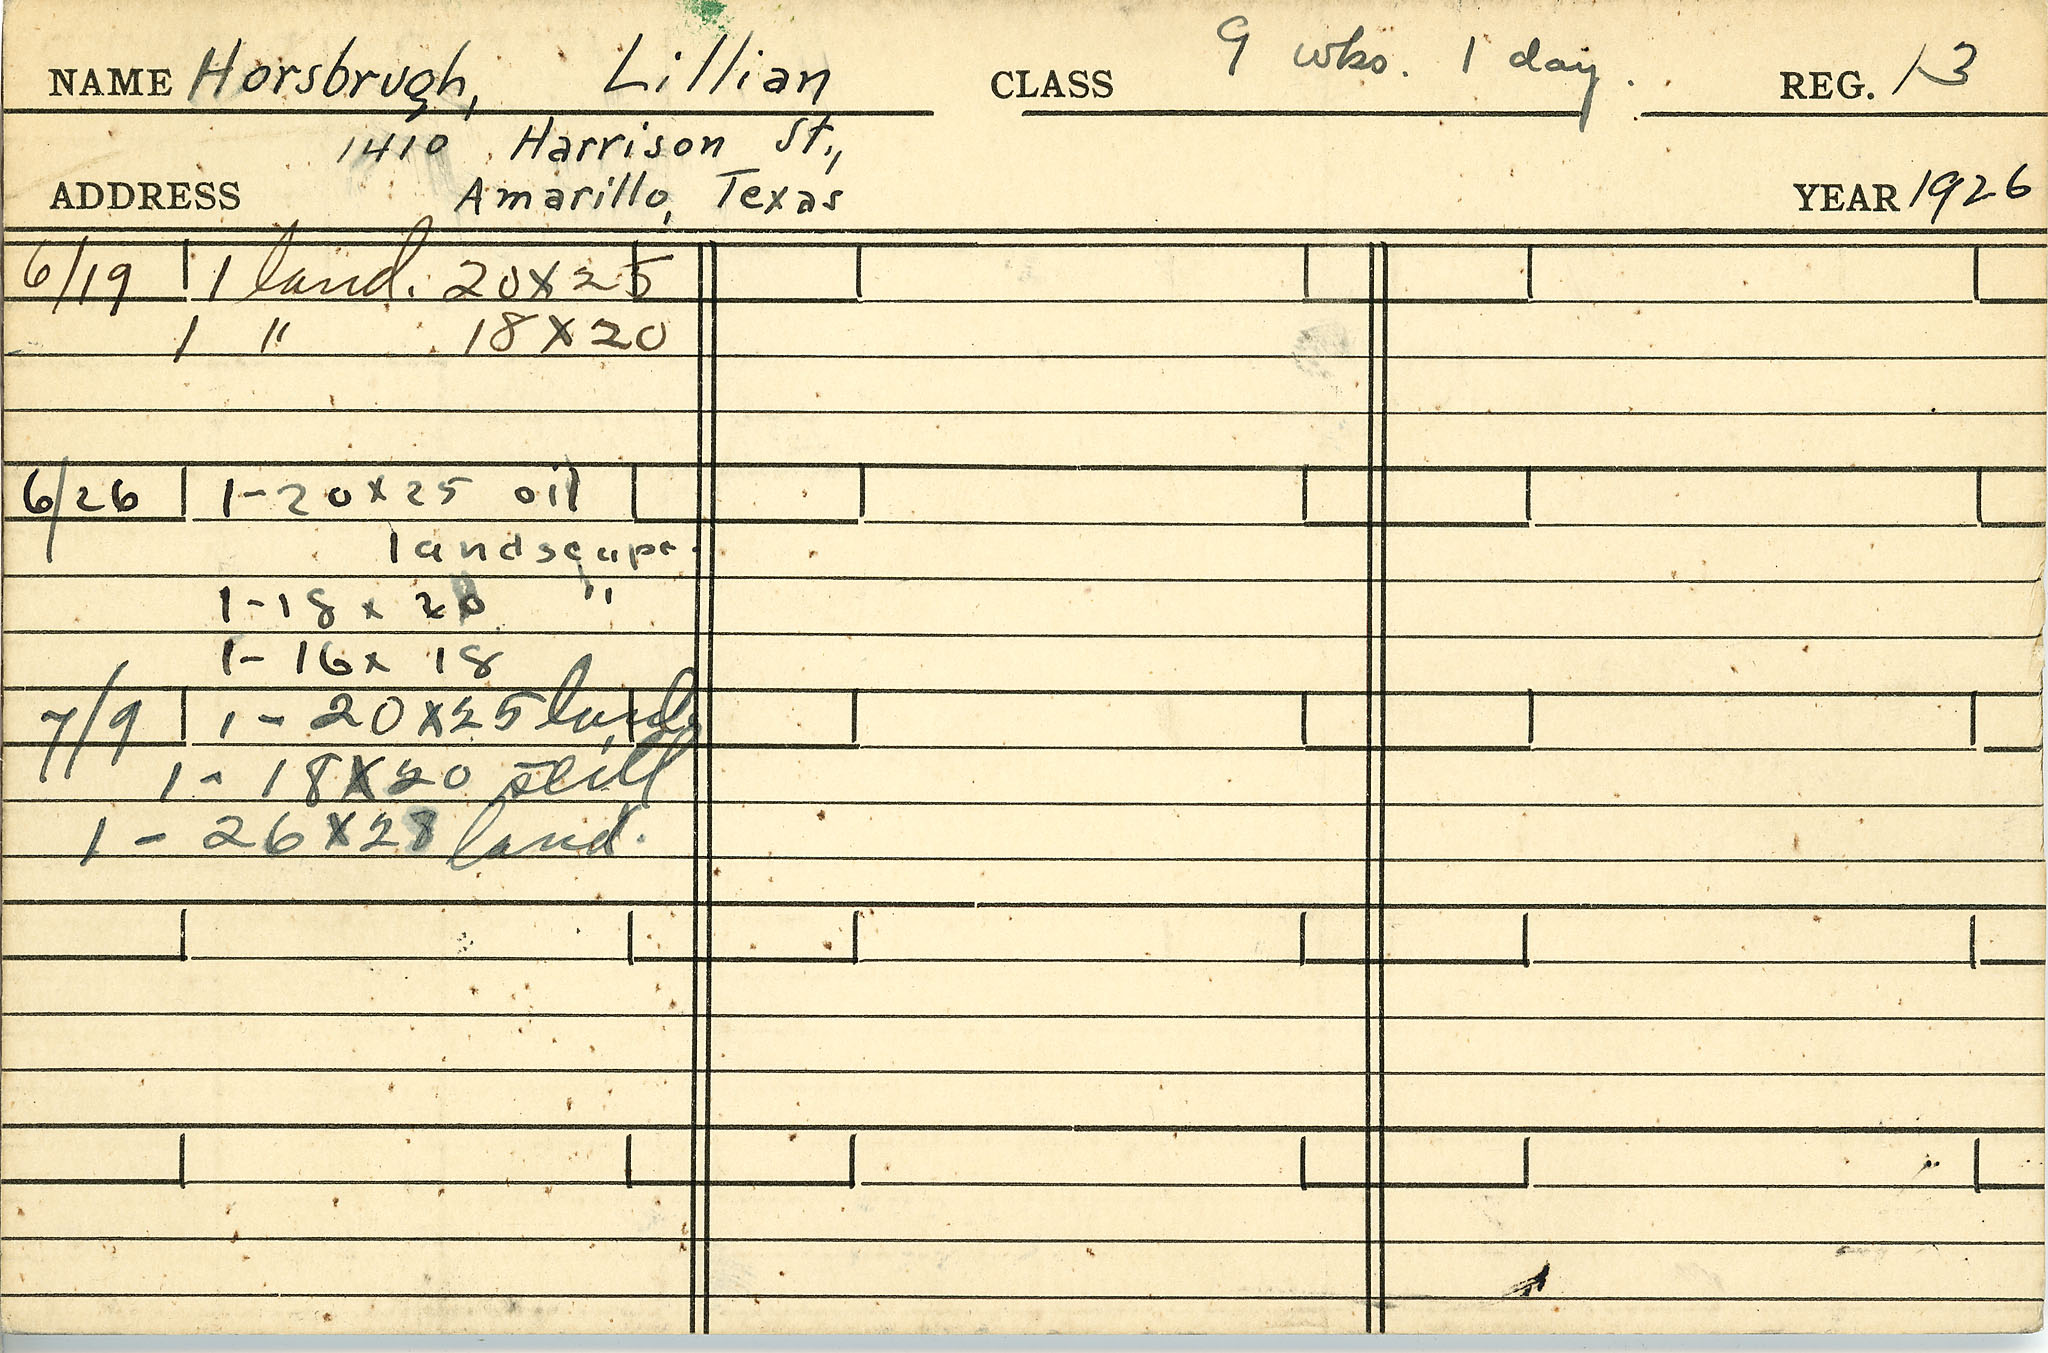 NAME Horsbrugh, Lillian CLASS 9 wks. 1 day. REG. 13
1410 Harrison St.,
ADDRESS Amarillo, Texas YEAR 1926
6/19 1 land. 20x25
1 " 18x20
6/26 1-20x25 oil
landscape.
1-18x20 "
1-16x18
7/9 1-20x25 land.
1-18x20 still
1-26x28 land.